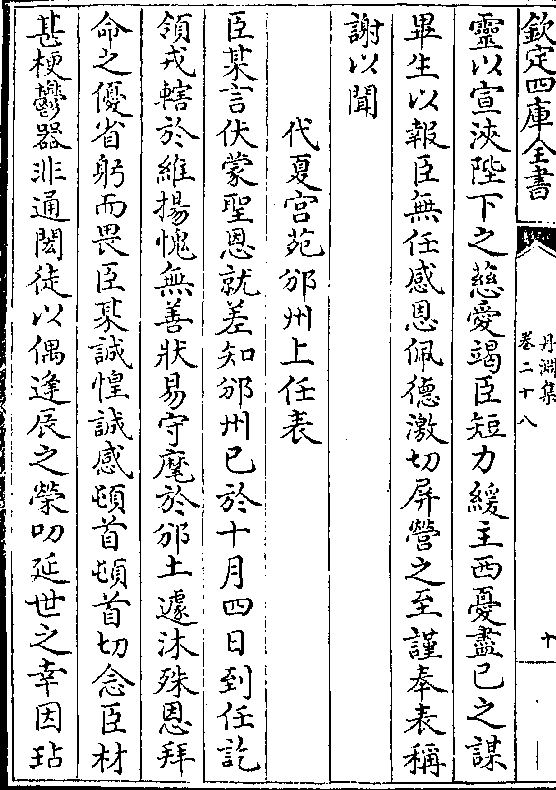 欽定四庫全書
丹淵集
卷二十八
十
靈以宣浹陛下之慈愛竭臣短力緩主西憂盡已之謀
畢生以報臣無任感恩佩德激切屏營之至謹奉表稱
謝以聞
代夏宫苑邠州上任表
臣某言伏蒙聖恩就差知邠州已於十月四日到任訖
領戎轄於維揚愧無善狀易守麾於邠土遽沐殊恩拜
命之優省躬而畏臣某誠惶誠感頓首頓首切念臣材
甚梗鬱器非通閎徒以偶逢辰之榮叨延世之幸因玷